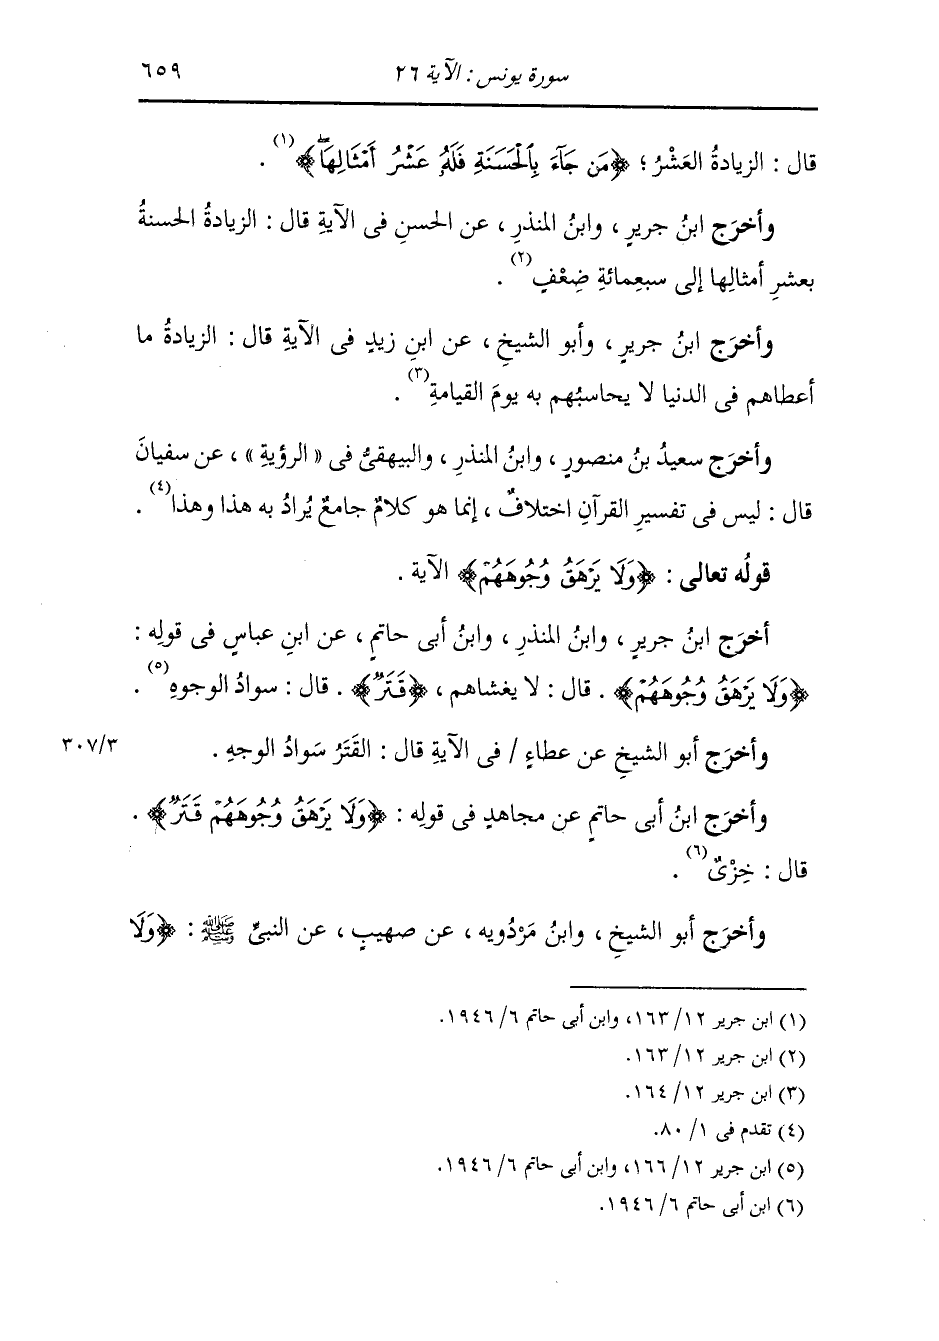 سورة يونس : الآية ٢٦ ٦٥٩
قال : الزيادةُ العَشْرُ ؛ ﴿مَن جَآءَ بِٱلْحَسَنَةِ فَلَهُۥ عَشْرُ أَمْثَالِهَاۖ﴾(١) .
وأخرَج ابنُ جريرٍ ، وابنُ المنذرِ ، عن الحسنِ فى الآيةِ قال : الزيادةُ الحسنةُ
بعشرِ أمثالِها إلى سبعِمائةِ ضِعْفٍ(٢) .
وأخرَج ابنُ جريرٍ ، وأبو الشيخِ ، عن ابنِ زيدٍ فى الآيةِ قال : الزيادةُ ما
أعطاهم فى الدنيا لا يحاسبُهم به يومَ القيامةِ(٣) .
وأخرَج سعيدُ بنُ منصورٍ ، وابنُ المنذرِ ، والبيهقىُّ فى « الرؤيةِ » ، عن سفيانَ
قال : ليس فى تفسيرِ القرآنِ اختلافٌ ، إنما هو كلامٌ جامعٌ يُرادُ به هذا وهذا(٤) .
قولُه تعالى : ﴿وَلَا يَرْهَقُ وُجُوهَهُمْ﴾ الآية .
أخرَج ابنُ جريرٍ ، وابنُ المنذرِ ، وابنُ أبى حاتمٍ ، عن ابنِ عباسٍ فى قولِه :
﴿وَلَا يَرْهَقُ وُجُوهَهُمْ﴾ . قال : لا يغشاهم ، ﴿قَتَرٌ﴾ . قال : سوادُ الوجوهِ(٥) .
وأخرَج أبو الشيخِ عن عطاءٍ / فى الآيةِ قال : القَتَرُ سَوادُ الوجهِ . ٣٠٧/٣
وأخرَج ابنُ أبى حاتمٍ عن مجاهدٍ فى قولِه : ﴿وَلَا يَرْهَقُ وُجُوهَهُمْ قَتَرٌ﴾ .
قال : خِزْىٌ(٦) .
وأخرَج أبو الشيخِ ، وابنُ مَرْدُويه ، عن صهيبٍ ، عن النبىِّ ﷺ : ﴿وَلَا
(١) ابن جرير ١٢/ ١٦٣، وابن أبى حاتم ٦/ ١٩٤٦.
(٢) ابن جرير ١٢/ ١٦٣.
(٣) ابن جرير ١٢/ ١٦٤.
(٤) تقدم فى ١/ ٨٠.
(٥) ابن جرير ١٢/ ١٦٦، وابن أبى حاتم ٦/ ١٩٤٦.
(٦) ابن أبى حاتم ٦/ ١٩٤٦.